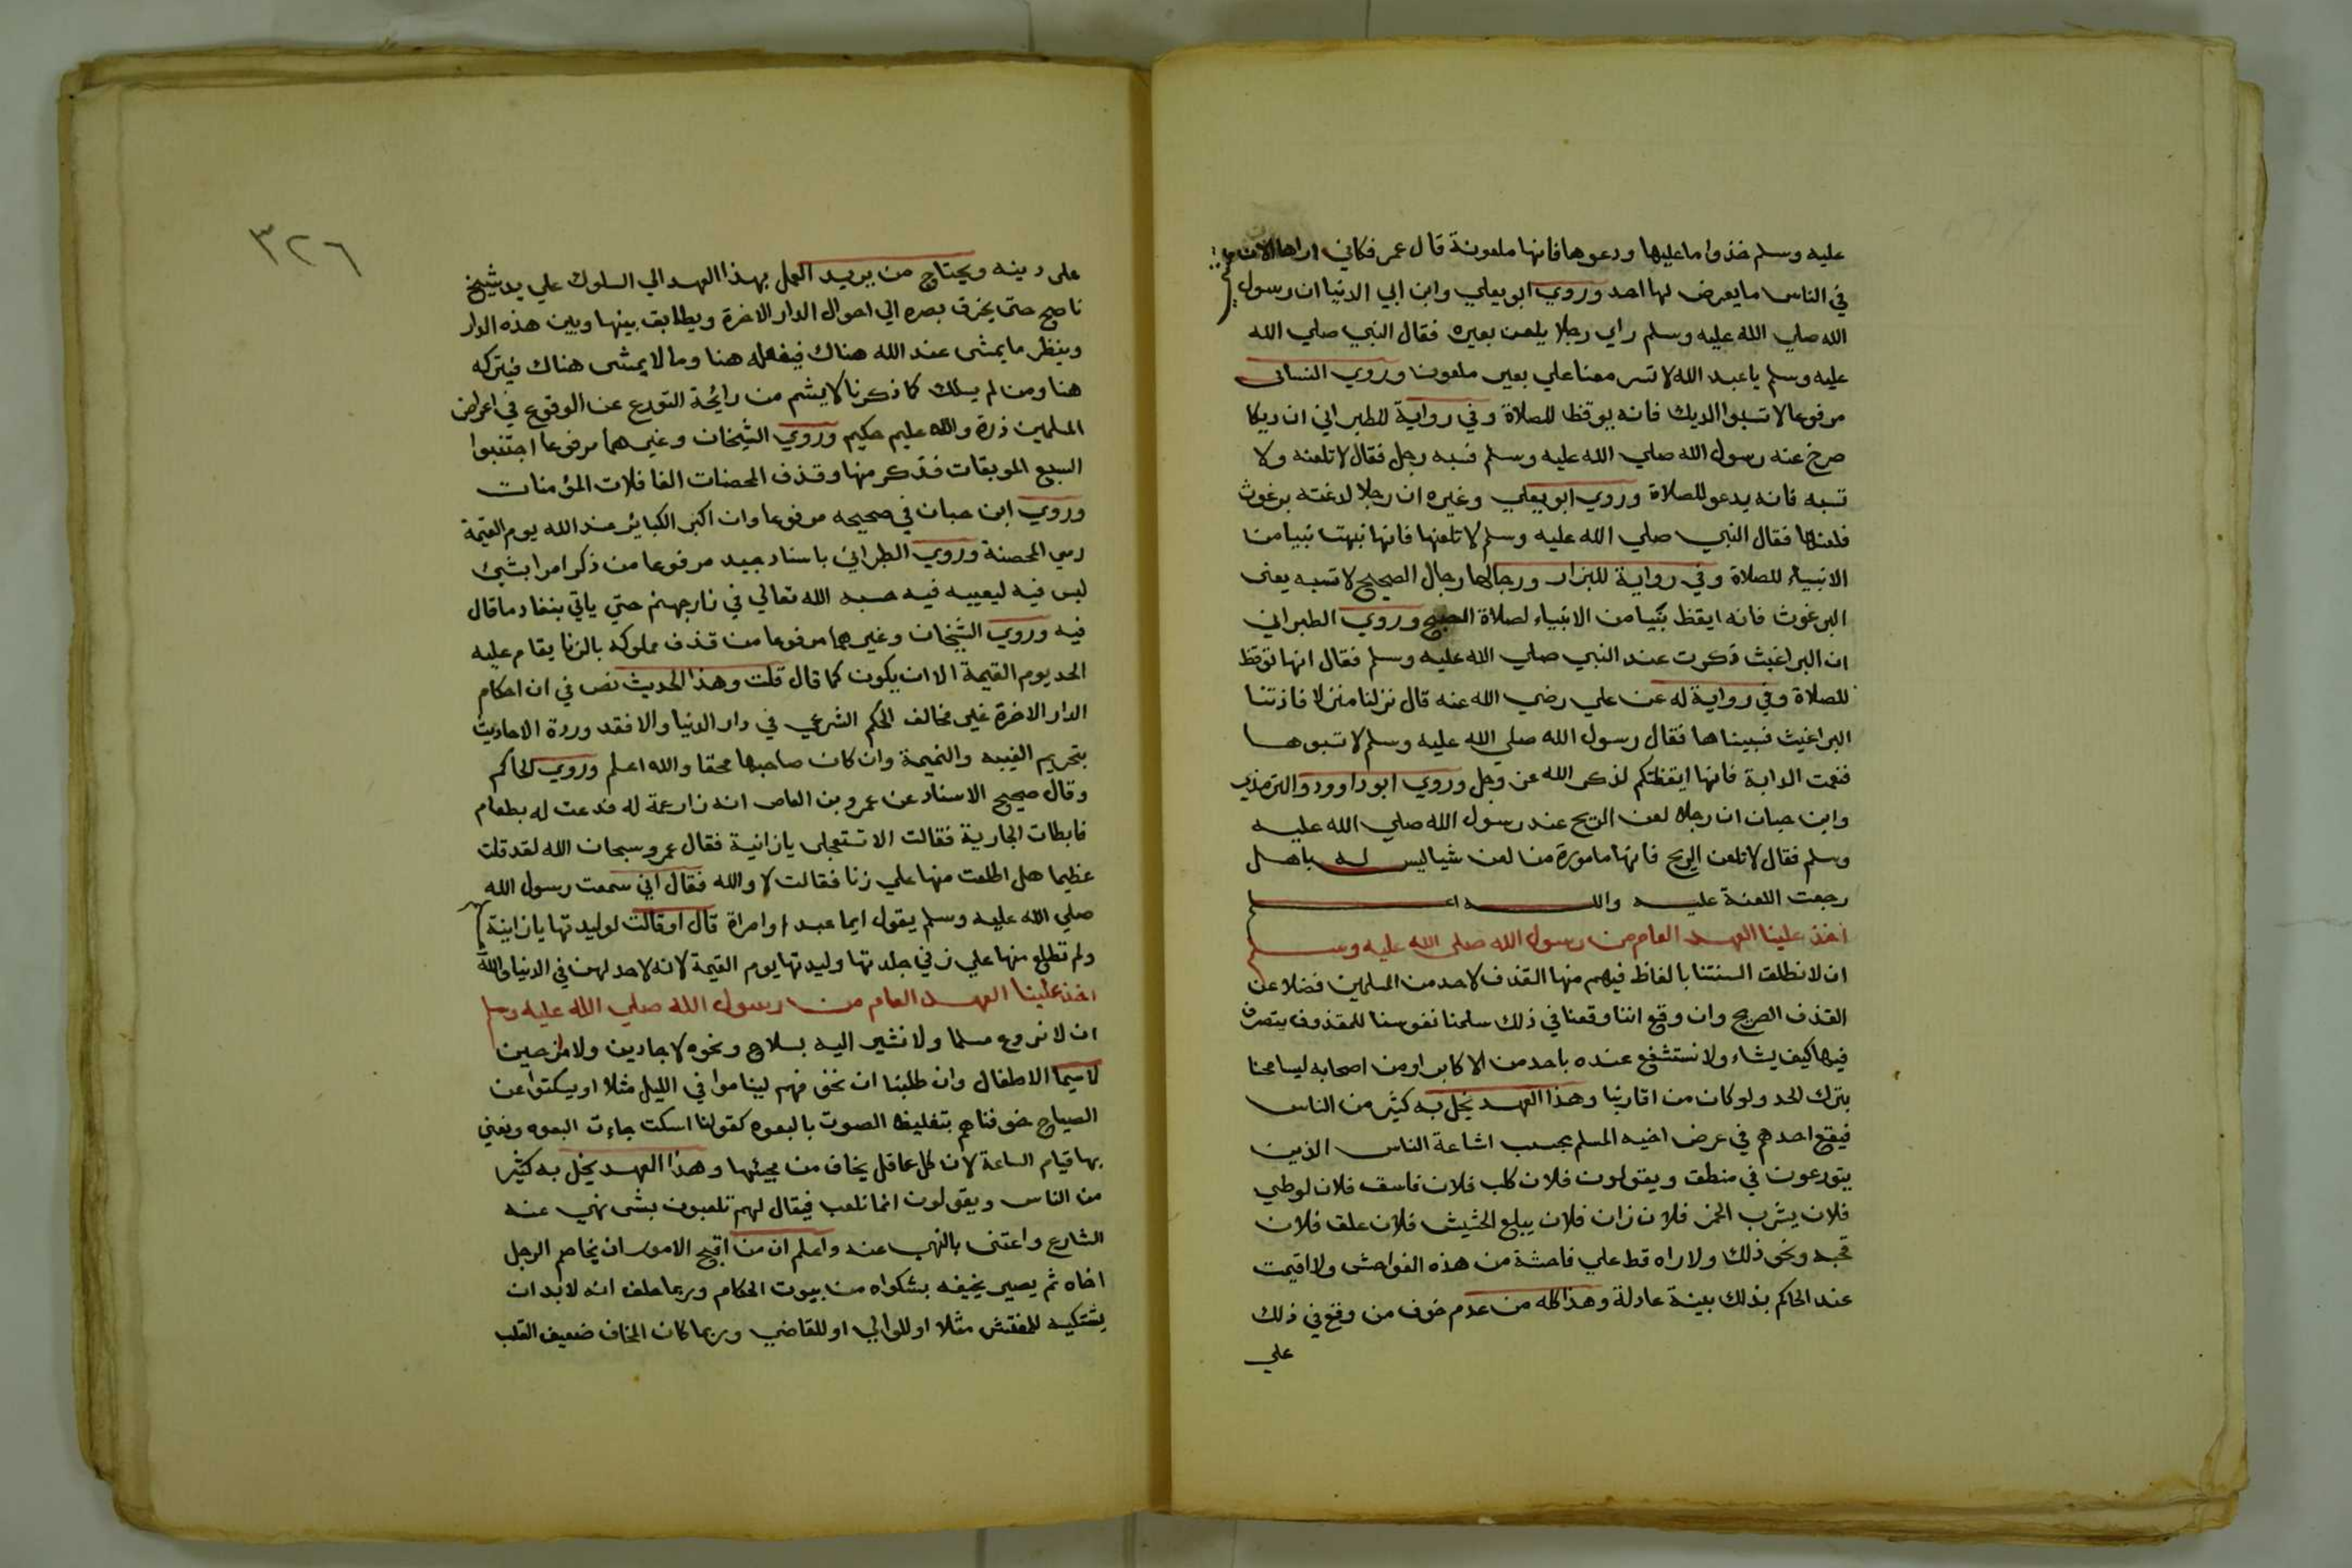 عليه وسلم خذوا ما عليها ودعوها فانها ملعونة قال عمر فكاني اراها الان تمشي
في الناس ما يعرض لها احد وروي ابو يعلي وابن ابي الدنيا ان رسول
الله صلي الله عليه وسلم راي رجلا يلعن بعيره فقال النبي صلي الله
عليه وسلم يا عبد الله لا تسر معنا علي بعير ملعون وروي النسائى
مرفوعا لا تسبوا الديك فانه يوقظ للصلاة وفي رواية للطبراني ان ديكا
صرخ عند رسول الله صلي الله عليه وسلم فسبه رجل فقال لا تلعنه ولا
تسبه فانه يدعو للصلاة وروي ابو يعلي وغيره ان رجلا لدغته برغوث
فلعنها فقال النبي صلي الله عليه وسلم لا تلعنها فانها نبهت نبيا من
الانبياء للصلاة وفي رواية للبزار ورجالها رجال الصحيح لا تسبه يعني
البرغوث فانه ايقظ نبيا من الانبياء لصلاة الصبح وروي الطبراني
ان البراغيث ذكرت عند النبي صلي الله عليه وسلم فقال انها توقظ
للصلاة وفي رواية له عن علي رضي الله عنه قال نزلنا منزلا فاذتنا
البراغيث فسبيناها فقال رسول الله صلي الله عليه وسلم لا تسبوها
فنعمت الدابة فانها ايقظتكم لذكر الله عز وجل وروي ابو داوود والترمذي
وابن حبان ان رجلا لعن الريح عند رسول الله صلي الله عليه
وسلم فقال لا تلعن الريح فانها مامورة من لعن شيا ليس له باهل
رجعت اللعنة عليه والله اعلم
اخذ علينا العهد العام من رسول الله صلى الله عليه وسلم
ان لا نطلق السنتنا بالفاظ فيهم منها القذف لاحد من المسلمين فضلا عن
القذف الصريح وان وقع اننا وقعنا في ذلك سلمنا نفوسنا للمقذوف يتصرف
فيها كيف يشاء ولا نستشفع عنده باحد من الاكابر او من اصحابه ليسامحنا
بترك الحد ولو كان من اقاربنا وهذا العهد يخل به كثير من الناس
فيقع احدهم في عرض اخيه المسلم بحسب اشاعة الناس الذين
يتورعون في منطق ويقولون فلان كلب فلان فاسق فلان لوطي
فلان يشرب الخمر فلان زان فلان يبلع الحشيش فلان علق فلان
قحبه ونحو ذلك ولا راه قط علي فاحشة من هذه الفواحش ولا اقيمت
عند الحاكم بذلك بينة عادلة وهذا كله من عدم خوف من وقع في ذلك
علي
٣٢٦
على دينه ويحتاج من يريد العمل بهذا العهد الي السلوك علي يد شيخ
ناصح حتى يخرق بصره الي احوال الدار الاخرة ويطابق بينها وبين هذه الدار
وينظر ما يمشى عند الله هناك فيفعله هنا وما لا يمشى هناك فيتركه
هنا ومن لم يسلك كما ذكرنا لا يشم من رائحة التورع عن الوقوع في اعراض
المسلمين ذرة والله عليم حكيم وروي الشيخان وغيرهما مرفوعا اجتنبوا
السبع الموبقات فذكر منها وقذف المحصنات الغافلات المؤمنات
وروي ابن حبان في صحيحه مرفوعا وان اكبر الكبائر عند الله يوم القيمة
رمي المحصنة وروي الطبراني باسناد جيد مرفوعا من ذكر امرا بشيء
ليس فيه ليعيبه فيه حبسه الله تعالي في نار جهنم حتي ياتي بنفاد ما قال
فيه وروي الشيخان وغيرهما مرفوعا من قذف مملوكه بالزنا يقام عليه
الحد يوم القيمة الا ان يكون كما قال قلت وهذا الحديث نص في ان احكام
الدار الاخرة غير مخالف الحكم الشرعي في دار الدنيا والا فقد وردة الاحاديث
بتحريم الغيبه والنميمة وان كان صاحبها محقا والله اعلم وروي الحاكم
وقال صحيح الاسناد عن عمرو بن العاص انه زار عمة له فدعت له بطعام
فابطات الجارية فقالت الا تستعجلي يا زانية فقال عمرو سبحان الله لقد قلت
عظيما هل اطلعت منها علي زنا فقالت لا والله فقال اني سمعت رسول الله
صلي الله عليه وسلم يقول ايما عبد او امراة قال او قالت لوليدتها يا زانية
ولم تطلع منها علي زني جلدتها وليدتها يوم القيمة لانه لا حد لهن في الدنيا والله
اخذ علينا العهد العام من رسول الله صلي الله عليه وسلم
ان لا نروع مسلما ولا نشير اليه بسلاح ونحوه لا جادين ولا مازحين
لا سيما الاطفال وان طلبنا ان نخوفهم ليناموا في الليل مثلا او يسكتوا عن
الصياح خوفناهم بتغليظ الصوت بالبعوه كقولنا اسكت جاءت البعوه ونعني
بها قيام الساعة لان كل عاقل يخاف من مجيئها وهذا العهد يخل به كثير
من الناس ويقولون انما نلعب فيقال لهم تلعبون بشى نهي عنه
الشارع واعتنى بالنهي عنه واعلم ان من اقبح الامور ان يخاصم الرجل
اخاه ثم يصير يخيفه بشكواه من بيوت الحكام وربما حلف انه لا بد ان
يشتكيه للمفتش مثلا او للوالي او للقاضي وربما كان المخاف ضعيف القلب